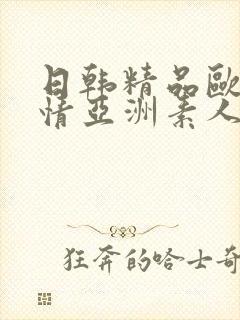 日韩精品歐
情亞洲素人
狂奔的哈士奇